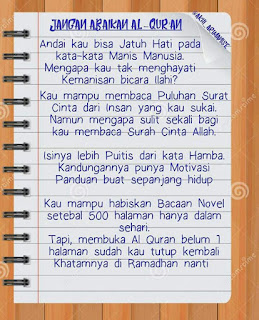 JANGAN ABAIKAN AL-QUR'AN
Andai kau bisa Jatuh Hati pada
kata-kata Manis Manusia.
Mengapa kau tak menghayati
Kemanisan bicara Ilahi?
Kau mampu membaca Puluhan Surat
Cinta dari Insan yang kau sukai.
Namun mengapa sulit sekali bagi
kau membaca Surah Cinta Allah.
Isinya lebih Puitis dari kata Hamba.
Kandungannya punya Motivasi
Panduan buat sepanjang hidup
Kau mampu habiskan Bacaan Novel
setebal 500 halaman hanya dalam
sehari.
Tapi, membuka Al Quran belum 1
halaman sudah kau tutup kembali
Khatamnya di Ramadhan nanti